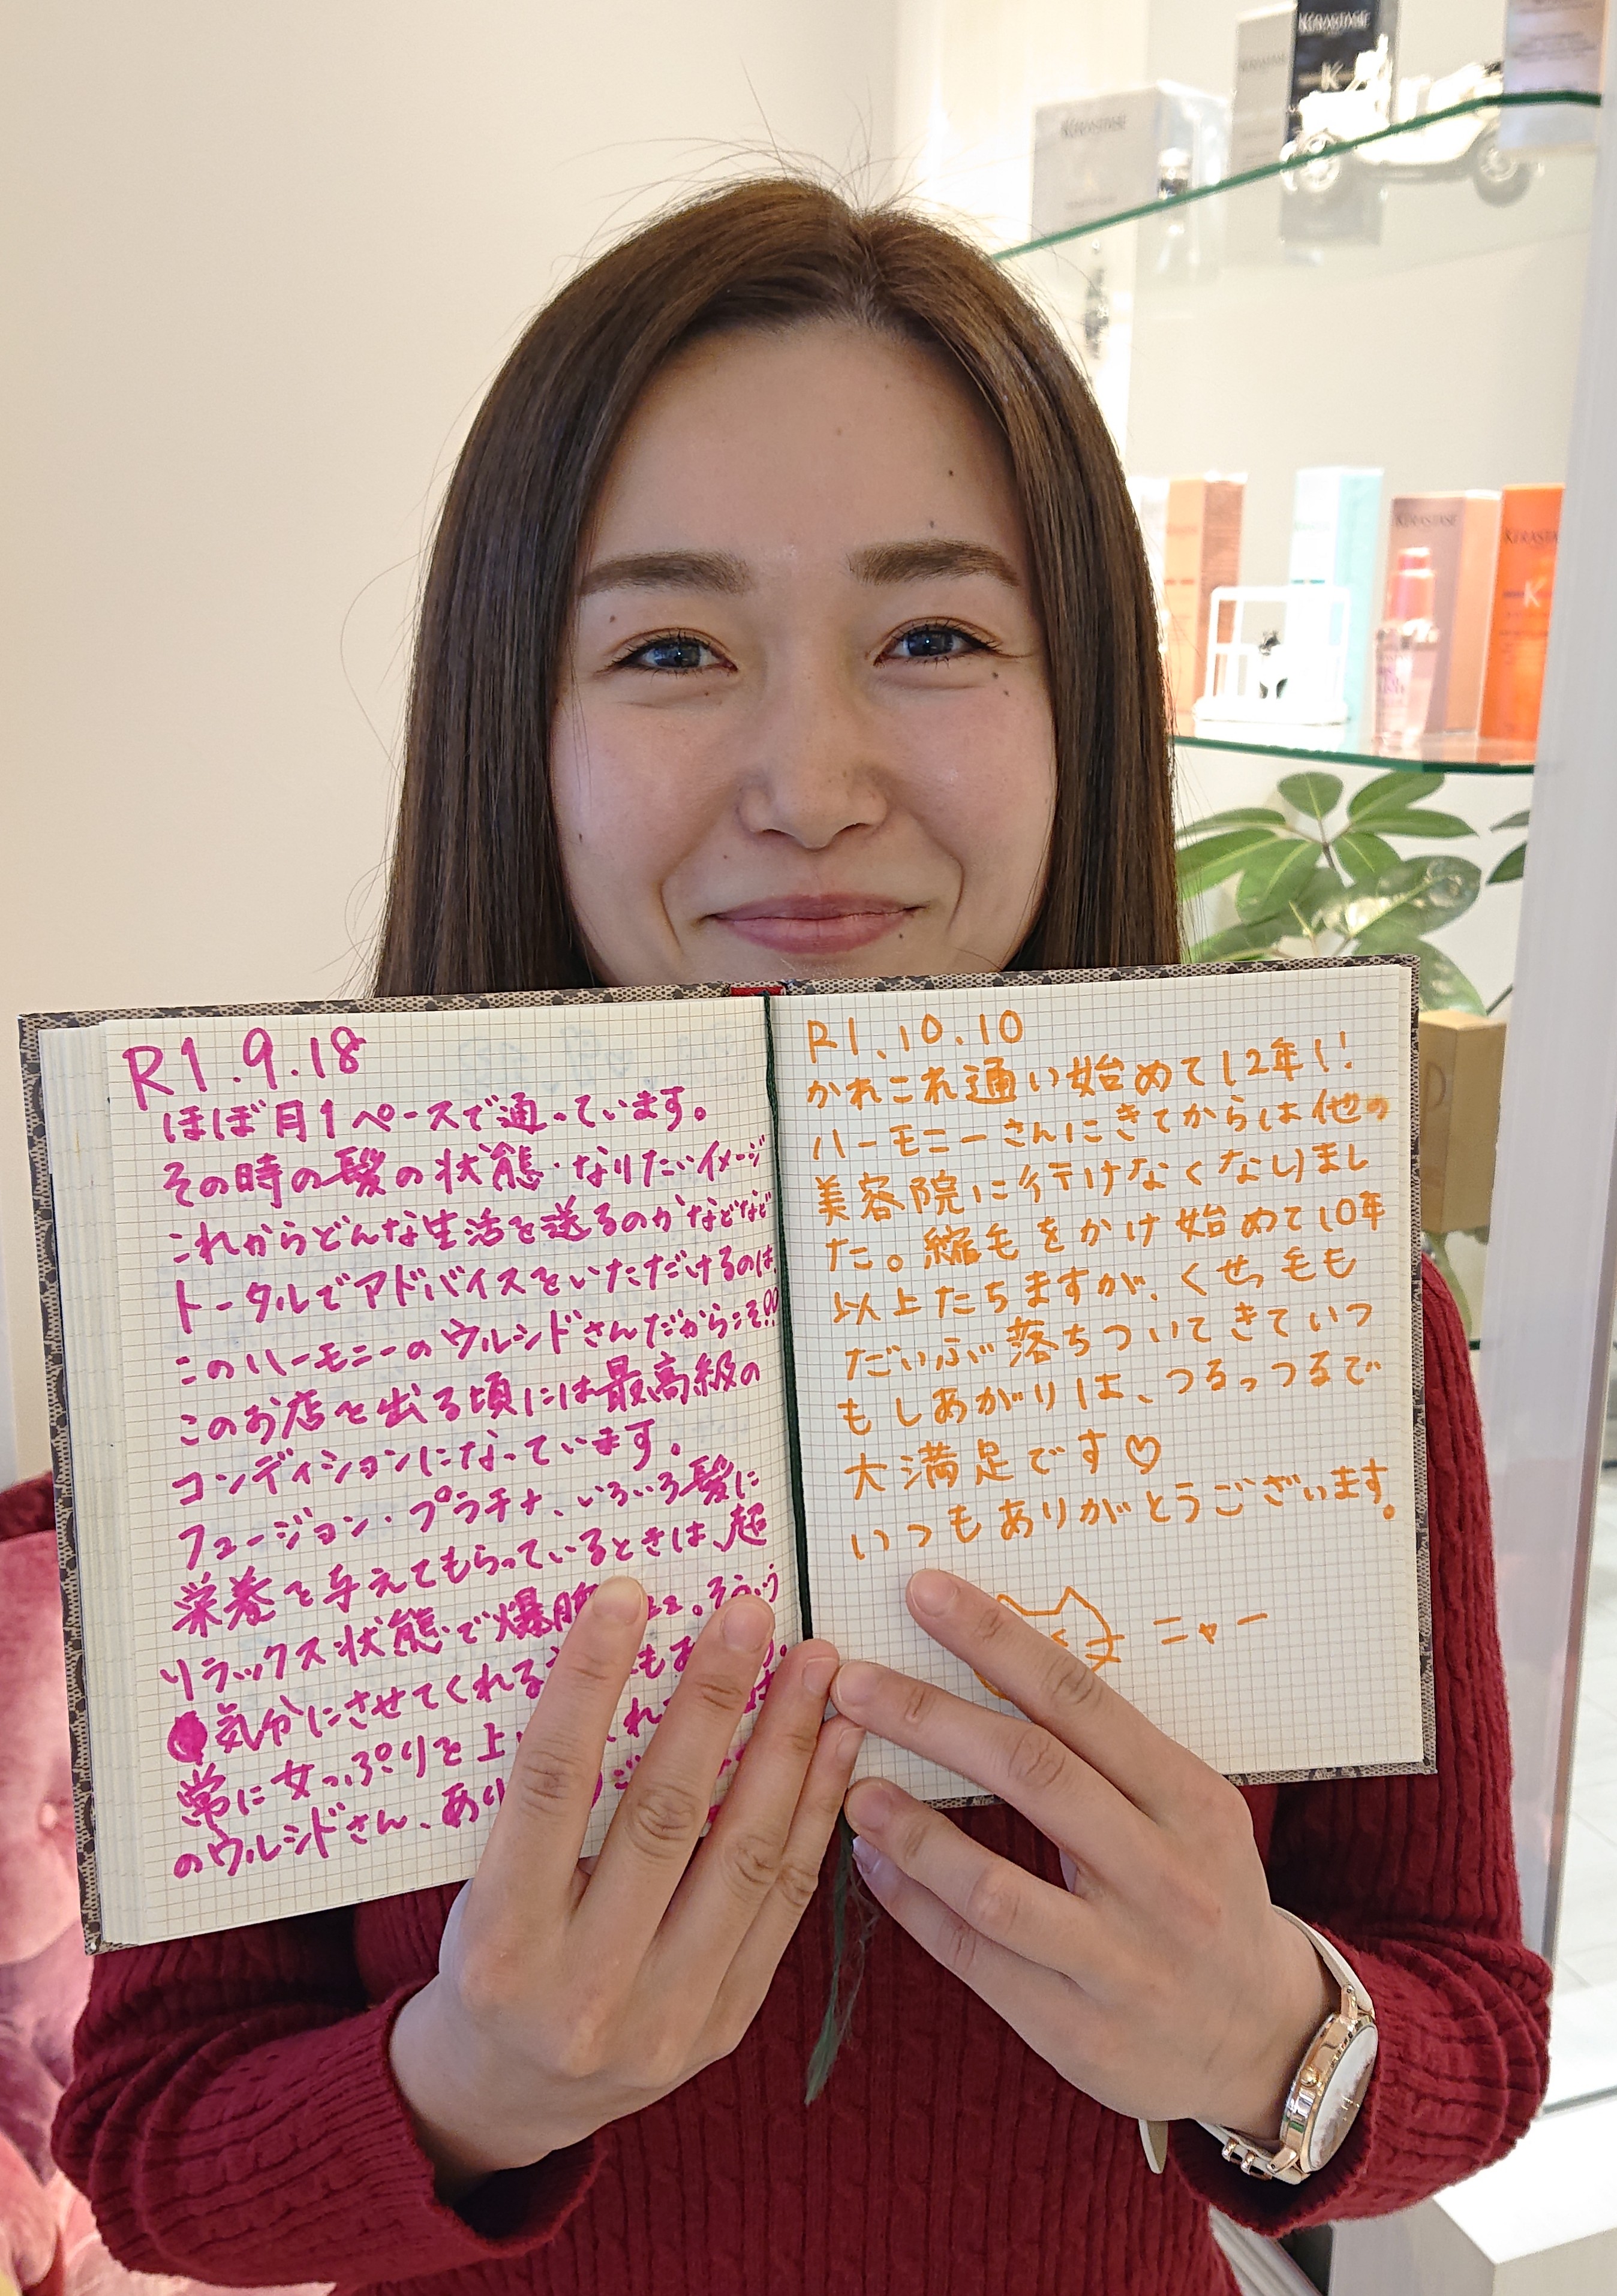 KÉRASTASE
KERASTASE
KÉRASTASE
K
KÉRASTASE
KÉRASTASE
K
R1.9.18
ほぼ月1ペースで通っています。
その時の髪の状態・なりたいイメージ
これからどんな生活を送るのかなどなど
トータルでアドバイスをいただけるのは、
このハーモニーのウルシドさんだからこそ!!
このお店を出る頃には最高級の
コンディションになっています。
フュージョン・プラチナ、いろいろ髪に
栄養を与えてもらっているときは、超
リラックス状態で爆 。そういう
気分にさせてくれる もお
常に女っぷりを上 くれ
のウルシドさん、あり
R1.10.10
かれこれ通い始めて12年!!
ハーモニーさんにきてからは他の
美容院に行けなくなりまし
た。縮毛をかけ始めて10年
以上たちますが、くせっ毛も
だいぶ落ちついてきていつ
もしあがりは、つるっつるで
大満足です♡
いつもありがとうございます。
ニャー